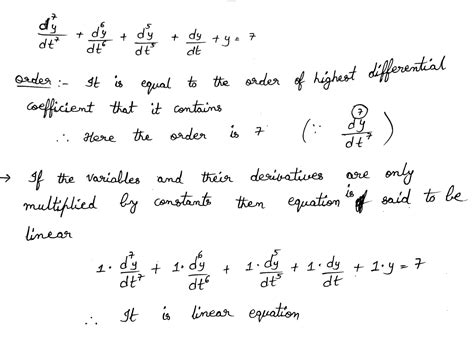 d⁷y/dt⁷ + d⁶y/dt⁶ + d⁵y/dt⁵ + dy/dt + y = 7
Order :- It is equal to the order of highest differential
coefficient that it contains
∴ Here the order is 7 (∵ d⁷y/dt⁷)
→ If the variables and their derivatives are only
multiplied by constants then equation is said to be
linear
1· d⁷y/dt⁷ + 1· d⁶y/dt⁶ + 1· d⁵y/dt⁵ + 1· dy/dt + 1·y = 7
∴ It is linear equation